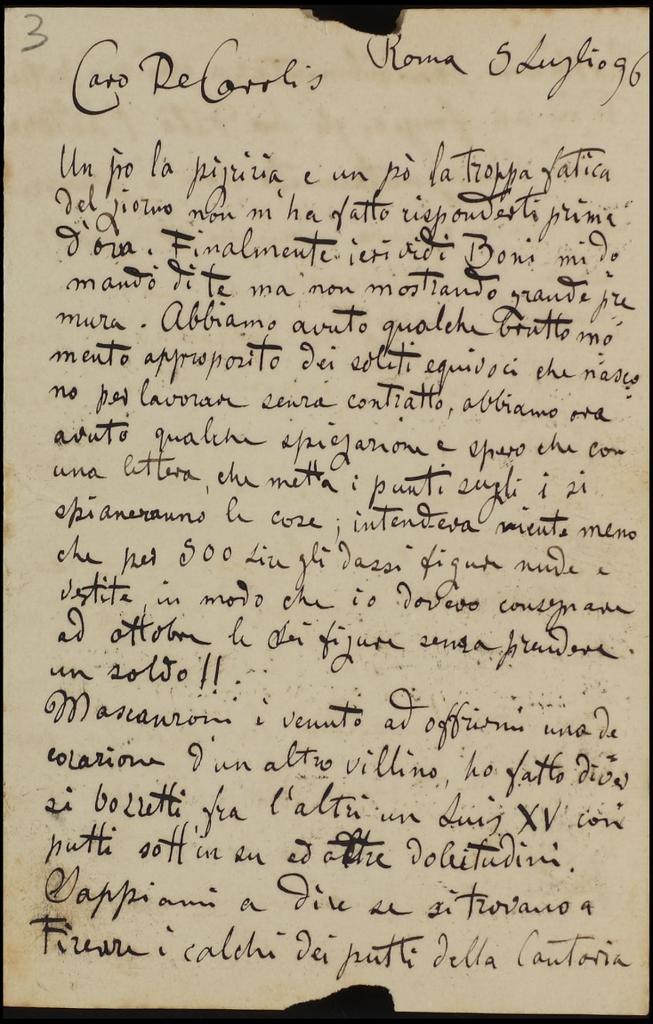 3
Caro De Carolis Roma 5 Luglio 96
Un pò la pigrizia e un pò la troppa fatica
del giorno non m'ha fatto risponderti prima
d'ora. Finalmente ieri vidi Boni mi do
mandò di te ma non mostrando grande pre
mura. Abbiamo avuto qualche brutto mo
mento approposito dei soliti equivoci che nasco
no per lavorare senza contratto, abbiamo ora
avuto qualche spiegazione e spero che con
una lettera, che metta i punti sugli i si
spianeranno le cose; intendeva niente meno
che per 500 Lire gli dassi figure nude e
vestite, in modo che io dovevo consegnare
ad ottobre le sei figure senza prendere
un soldo!!
Mascanzoni è venuto ad offrirmi una de
corazione d'un altro villino, ho fatto diver
si bozzetti fra l'altri un Luig XV con
putti sott'in su ed altre dolcitudini.
Sappiami a dire se si trovano a
Firenze i calchi dei putti della Cantoria